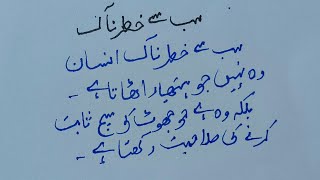 سب سے خطرناک
سب سے خطرناک انسان
وہ نہیں جو ہتھیار اٹھاتا ہے -
بلکہ وہ ہے جو جھوٹ کو سچ ثابت
کرنے کی صلاحیت رکھتا ہے -